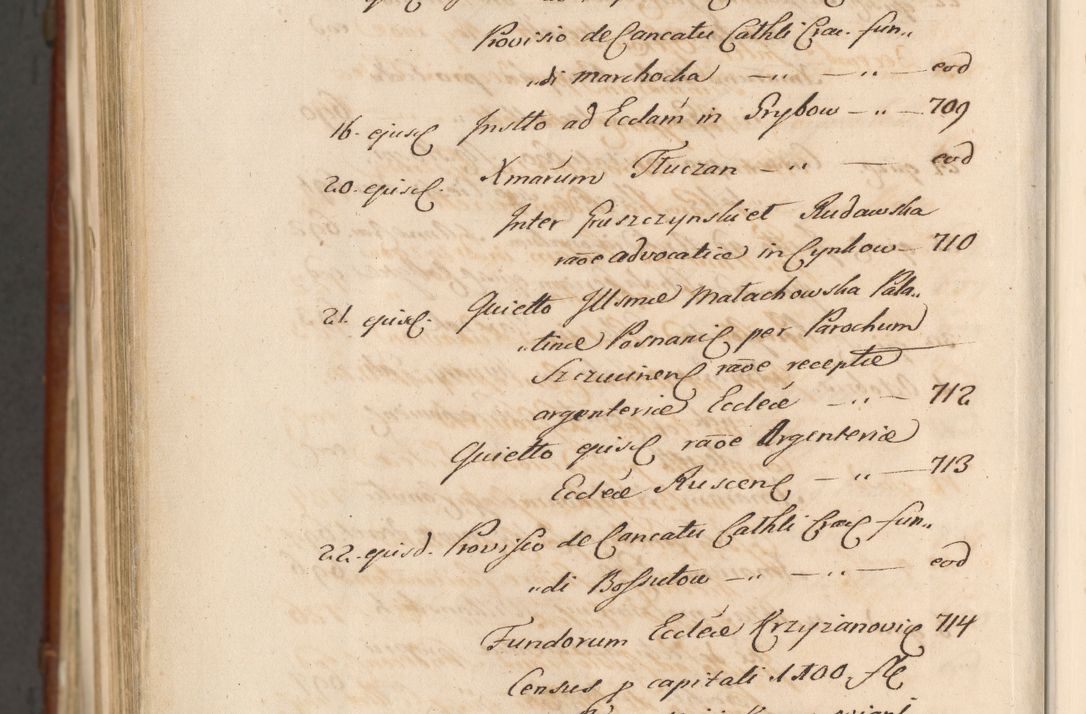 Provisio de Cancatu Cathli Crac. fun„
„di marchocka — „ — „ — eod
16. ejusd Instto ad Eccłam in Grybow — „ — 709
20. ejusd. Xmarum Tłuczan — „ — eod
Inter Gruszczynski et Rudawska
raõe advocatiæ in Cynkow — 710
21. ejusd. Quietto Illsmæ Małachowska Pala„
„tinæ Posnanie per Parochum
raõe receptæ
argenteriæ Eccleæ — „ — 712
Quietto ejusd raõe Argenteriæ
Eccleæ Ruscen — „ — 713
22. ejusd. Provisio de Cancatu Cathli Crac fun„
„di Bossutow — „ — „ — eod
Fundorum Eccleæ Krzyżanovic 714
Census p capitali 1100 fl